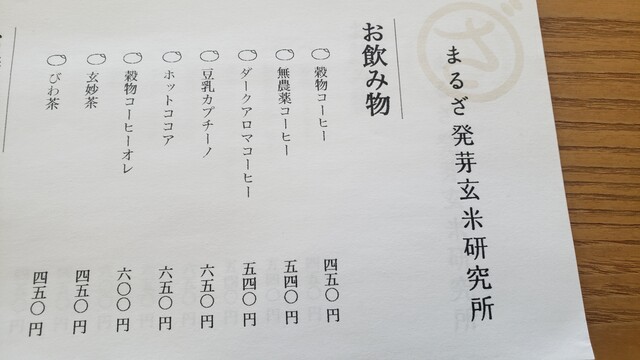 ざ
まるざ発芽玄米研究所
お飲み物
穀物コーヒー 四五〇円
無農薬コーヒー 五四〇円
ダークアロマコーヒー 五四〇円
豆乳カプチーノ 六五〇円
ホットココア 六五〇円
穀物コーヒーオレ 六〇〇円
玄妙茶 四五〇円
びわ茶 四五〇円